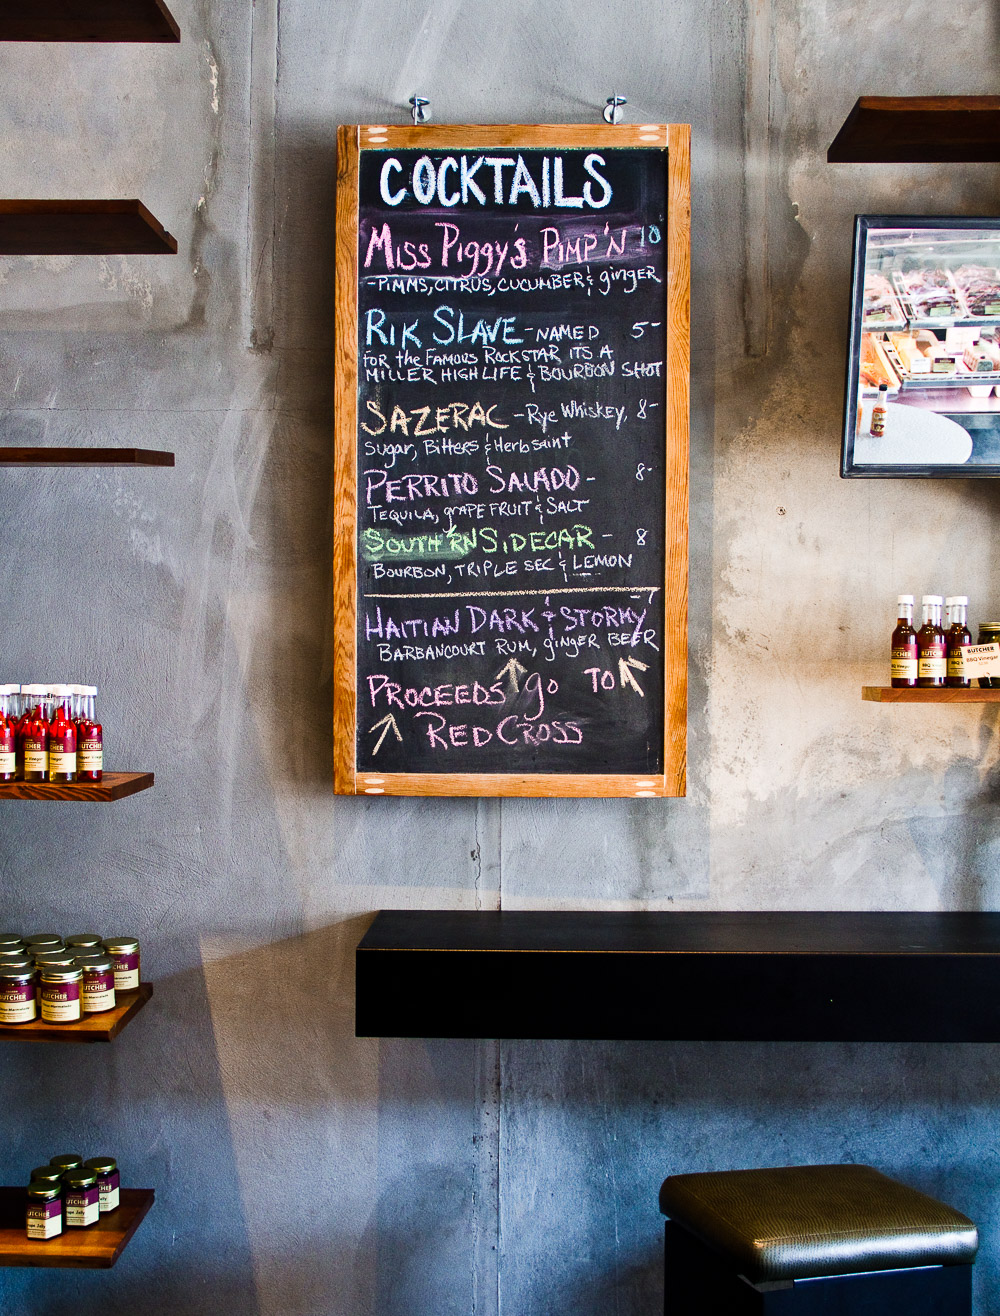 COCKTAILS
MISS PIGGY'S PIMP'N 10
-PIMMS, CITRUS, CUCUMBER & ginger
RIK SLAVE - NAMED 5-
for the FAMOUS ROCKSTAR ITS A
MILLER HIGH LIFE & BOURBON SHOT
SAZERAC - Rye Whiskey, 8-
Sugar, Bitters & Herbsaint
PERRITO SALADO - 8-
TEQUILA, grAPEFRUIT & SALT
SOUTH'RN SIDECAR - 8
BOURBON, TRIPLE SEC & LEMON
-7
HAITIAN DARK & STORMY
BARBANCOURT RUM, ginger BEER
PROCEEDS go TO
RED CROSS
BUTCHER
BBQ Vinegar
BUTCHER
BUTCHER
BUTCHER